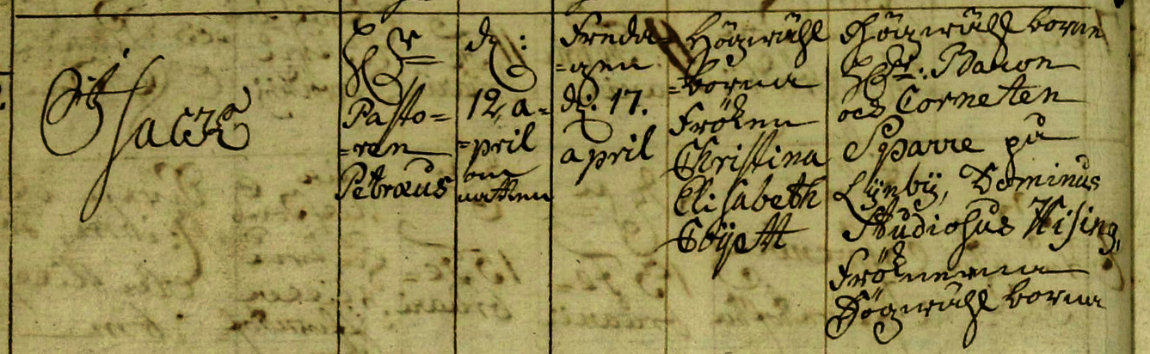 Isacus
H Hr
Pasto=
=ren
Petræus
d:
12, a=
=pril
om
natten
Freda=
=gen
d: 17.
april
Högwähl
=borna
Fröken
Christina
Elisabeth
Högwähl borne
H Hr. Baron
och Corneten
Sparre på
Lÿnbÿ, Dominus
Studiosus Wising,
Fröknerna
Högwähl borna